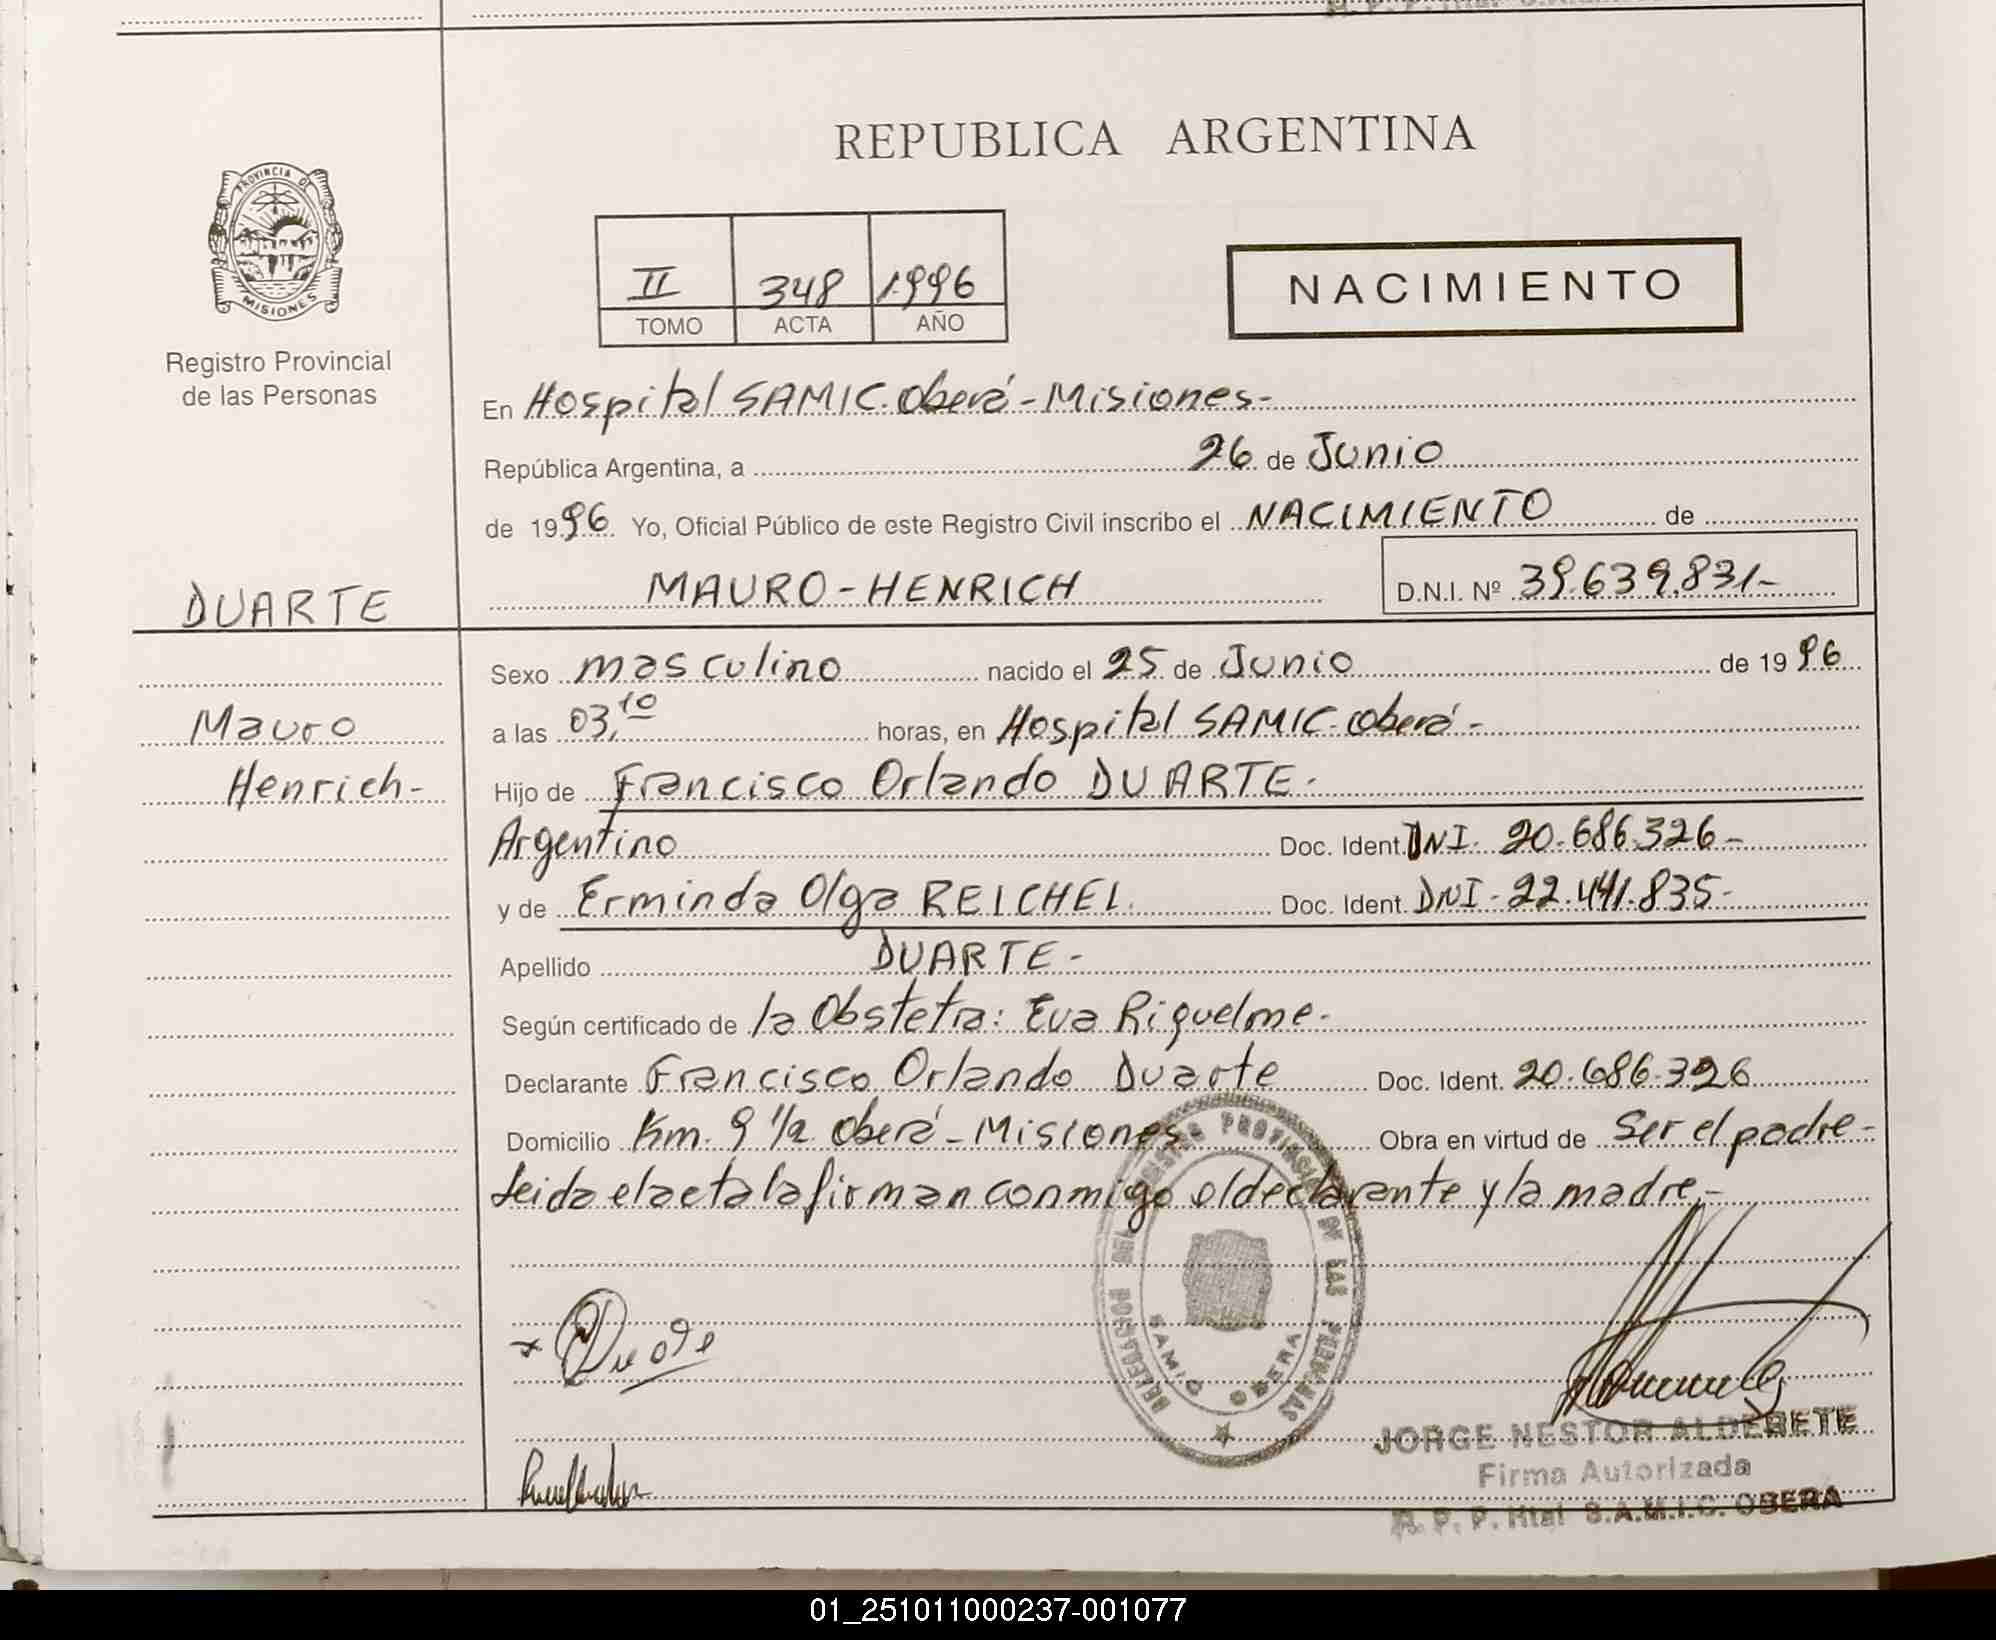 REPUBLICA ARGENTINA
PROVINCIA DE
MISIONES
Registro Provincial
de las Personas
II 348 1996
TOMO ACTA AÑO
NACIMIENTO
En Hospital SAMIC. Oberá - Misiones-
República Argentina, a 26 de Junio
de 1996 Yo, Oficial Público de este Registro Civil inscribo el NACIMIENTO de
MAURO-HENRICH D.N.I. Nº 39.639.831-
DUARTE
Mauro
Henrich-
Sexo masculino nacido el 25 de Junio de 1996
a las 03,10 horas, en Hospital SAMIC-Oberá-
Hijo de Francisco Orlando DUARTE.
Argentino Doc. Ident. DNI. 20.686.326-
y de Erminda Olga REICHEL. Doc. Ident. DNI-22.441.835-
Apellido DUARTE-
Según certificado de la Obstetra: Eva Riquelme-
Declarante Francisco Orlando Duarte Doc. Ident. 20.686.326
Domicilio Km. 9 1/2 Oberá-Misiones Obra en virtud de Ser el padre-
Leida el acta la firman conmigo el declarante y la madre,-
DELEGACION DEL REGISTRO PROVINCIAL DE LAS PERSONAS
SAMIC OBERA
JORGE NESTOR ALDERETE
Firma Autorizada
R. P. P. Htal S.A.M.I.C. OBERA
01_251011000237-001077